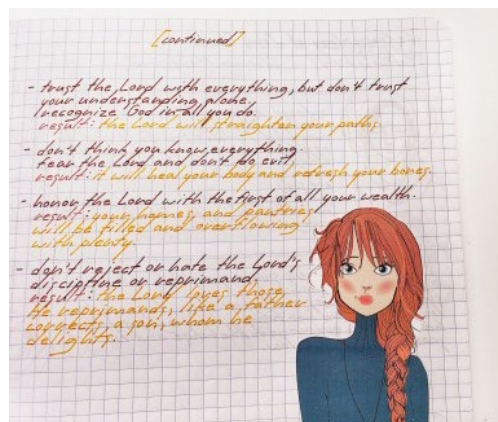 [continued]
- trust the Lord with everything, but don't trust
your understanding alone.
recognize God in all you do.
result: the Lord will straighten your paths.
- don't think you know everything.
fear the Lord and don't do evil,
result: it will heal your body and refresh your bones.
- honor the Lord with the first of all your wealth.
result: your homes, and pantries
will be filled and overflowing
with plenty.
- don't reject or hate the Lord's
discipline or reprimand,
result: the Lord loves those,
He reprimands, like a father
corrects, a son, whom he
delights.